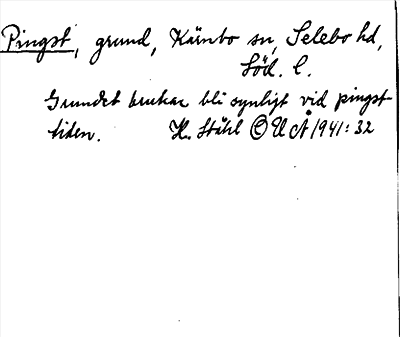 Pingst, grund, Kärnbo sn, Selebo hd,
Söd. l.
Grundet brukar bli synligt vid pingst-
tiden. H. Ståhl © ULÅ 1941: 32